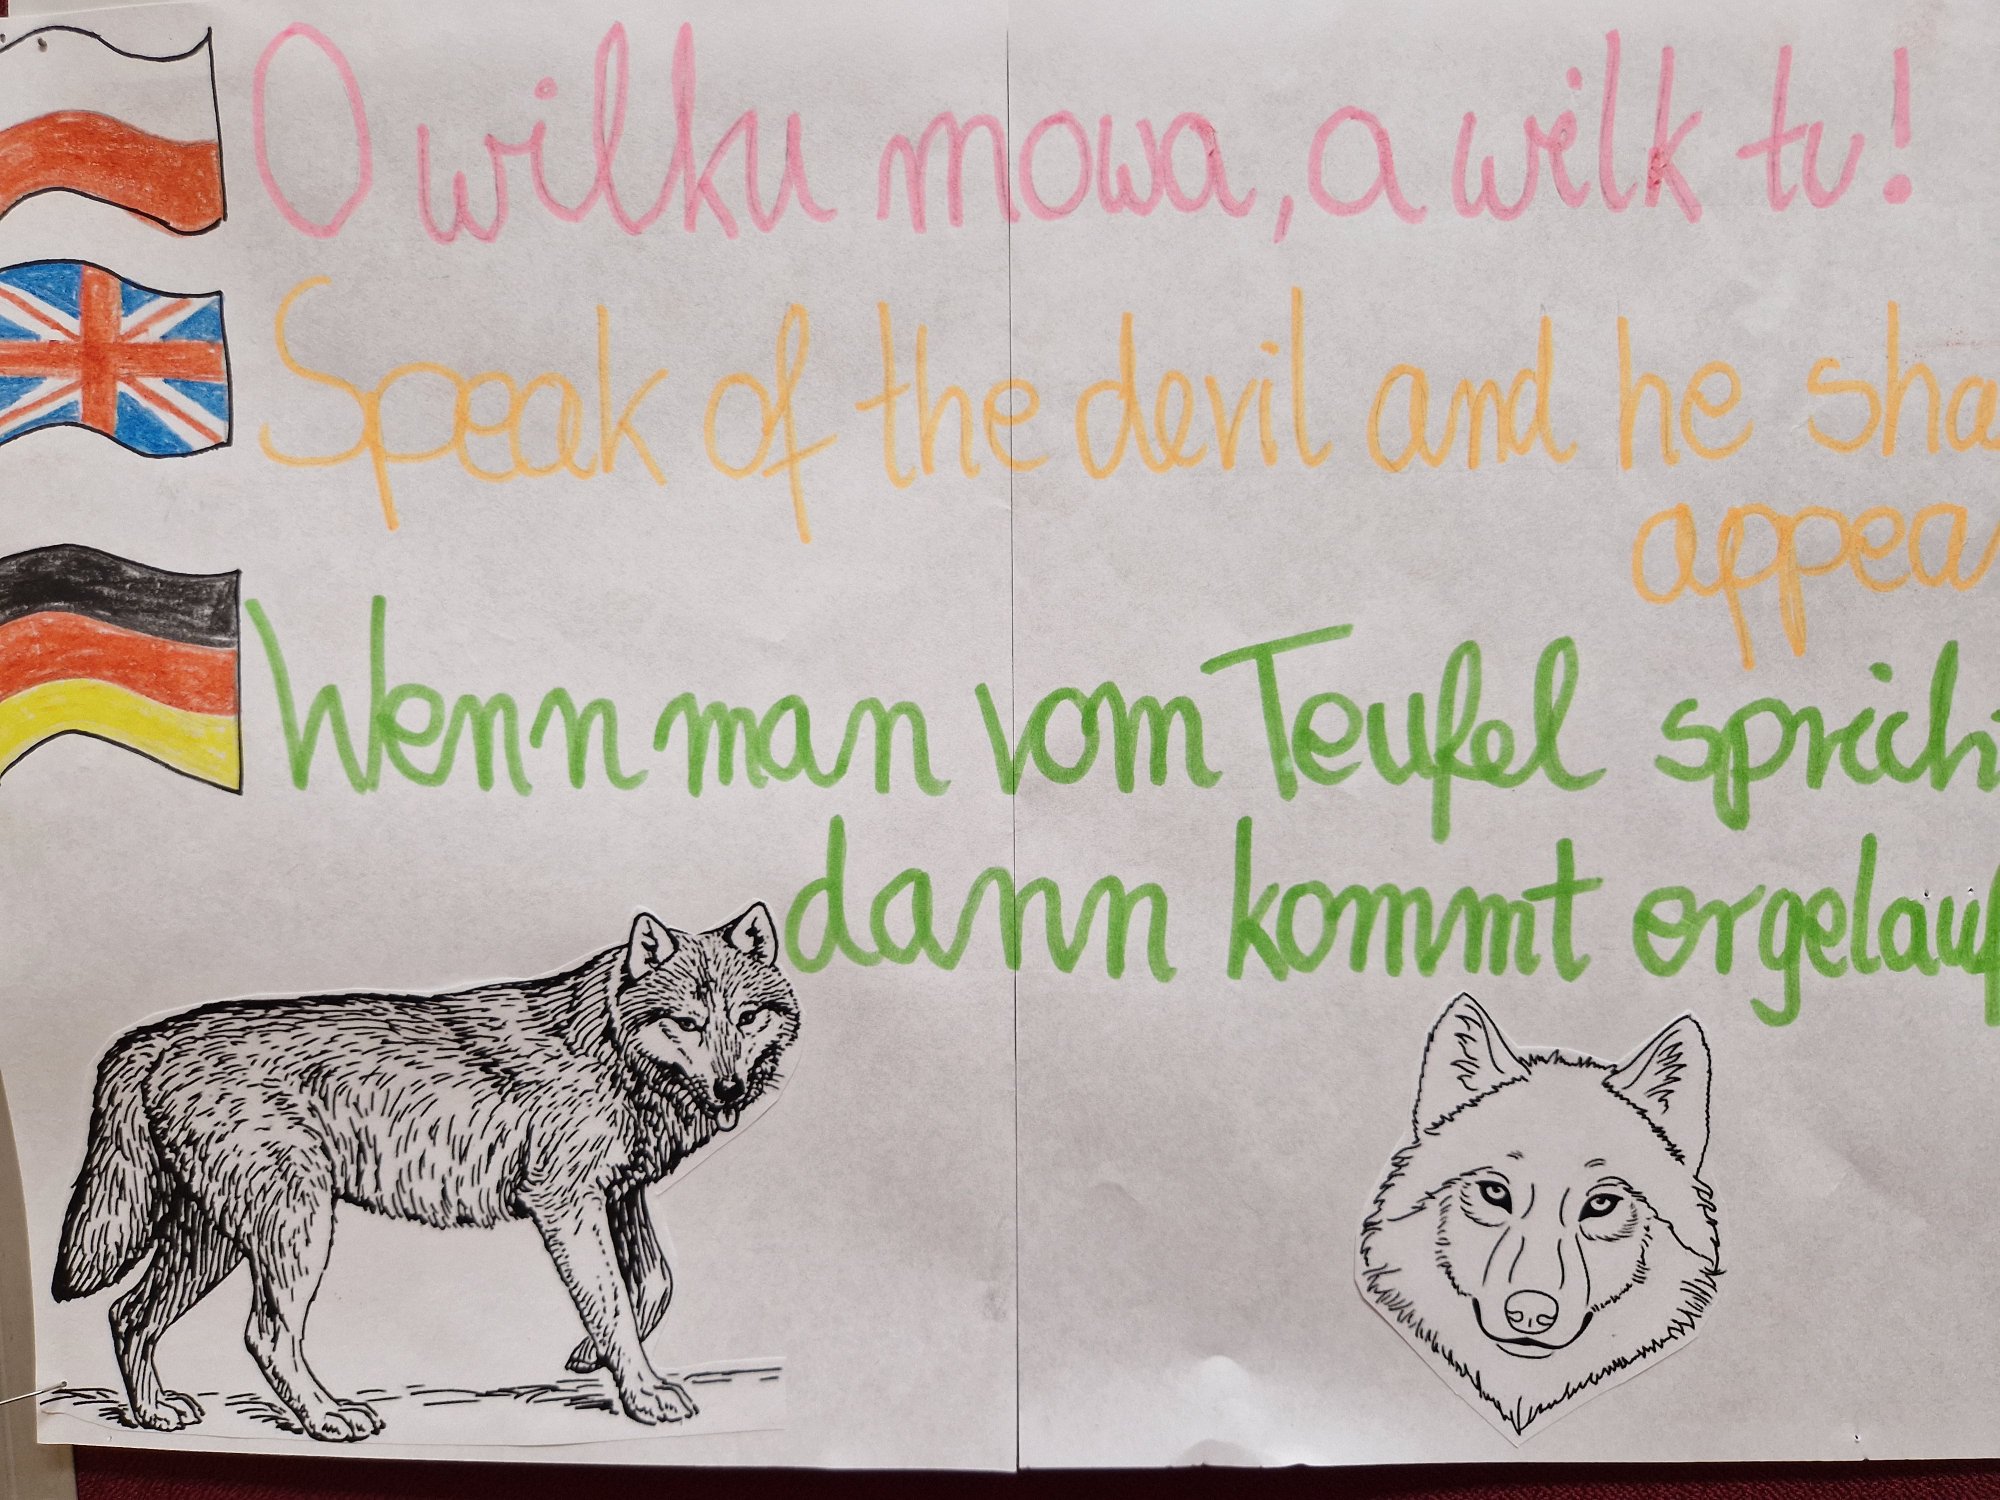 O wilku mowa, a wilk tu!
Speak of the devil and he sha
appear
Wenn man vom Teufel spricht
dann kommt er gelauf